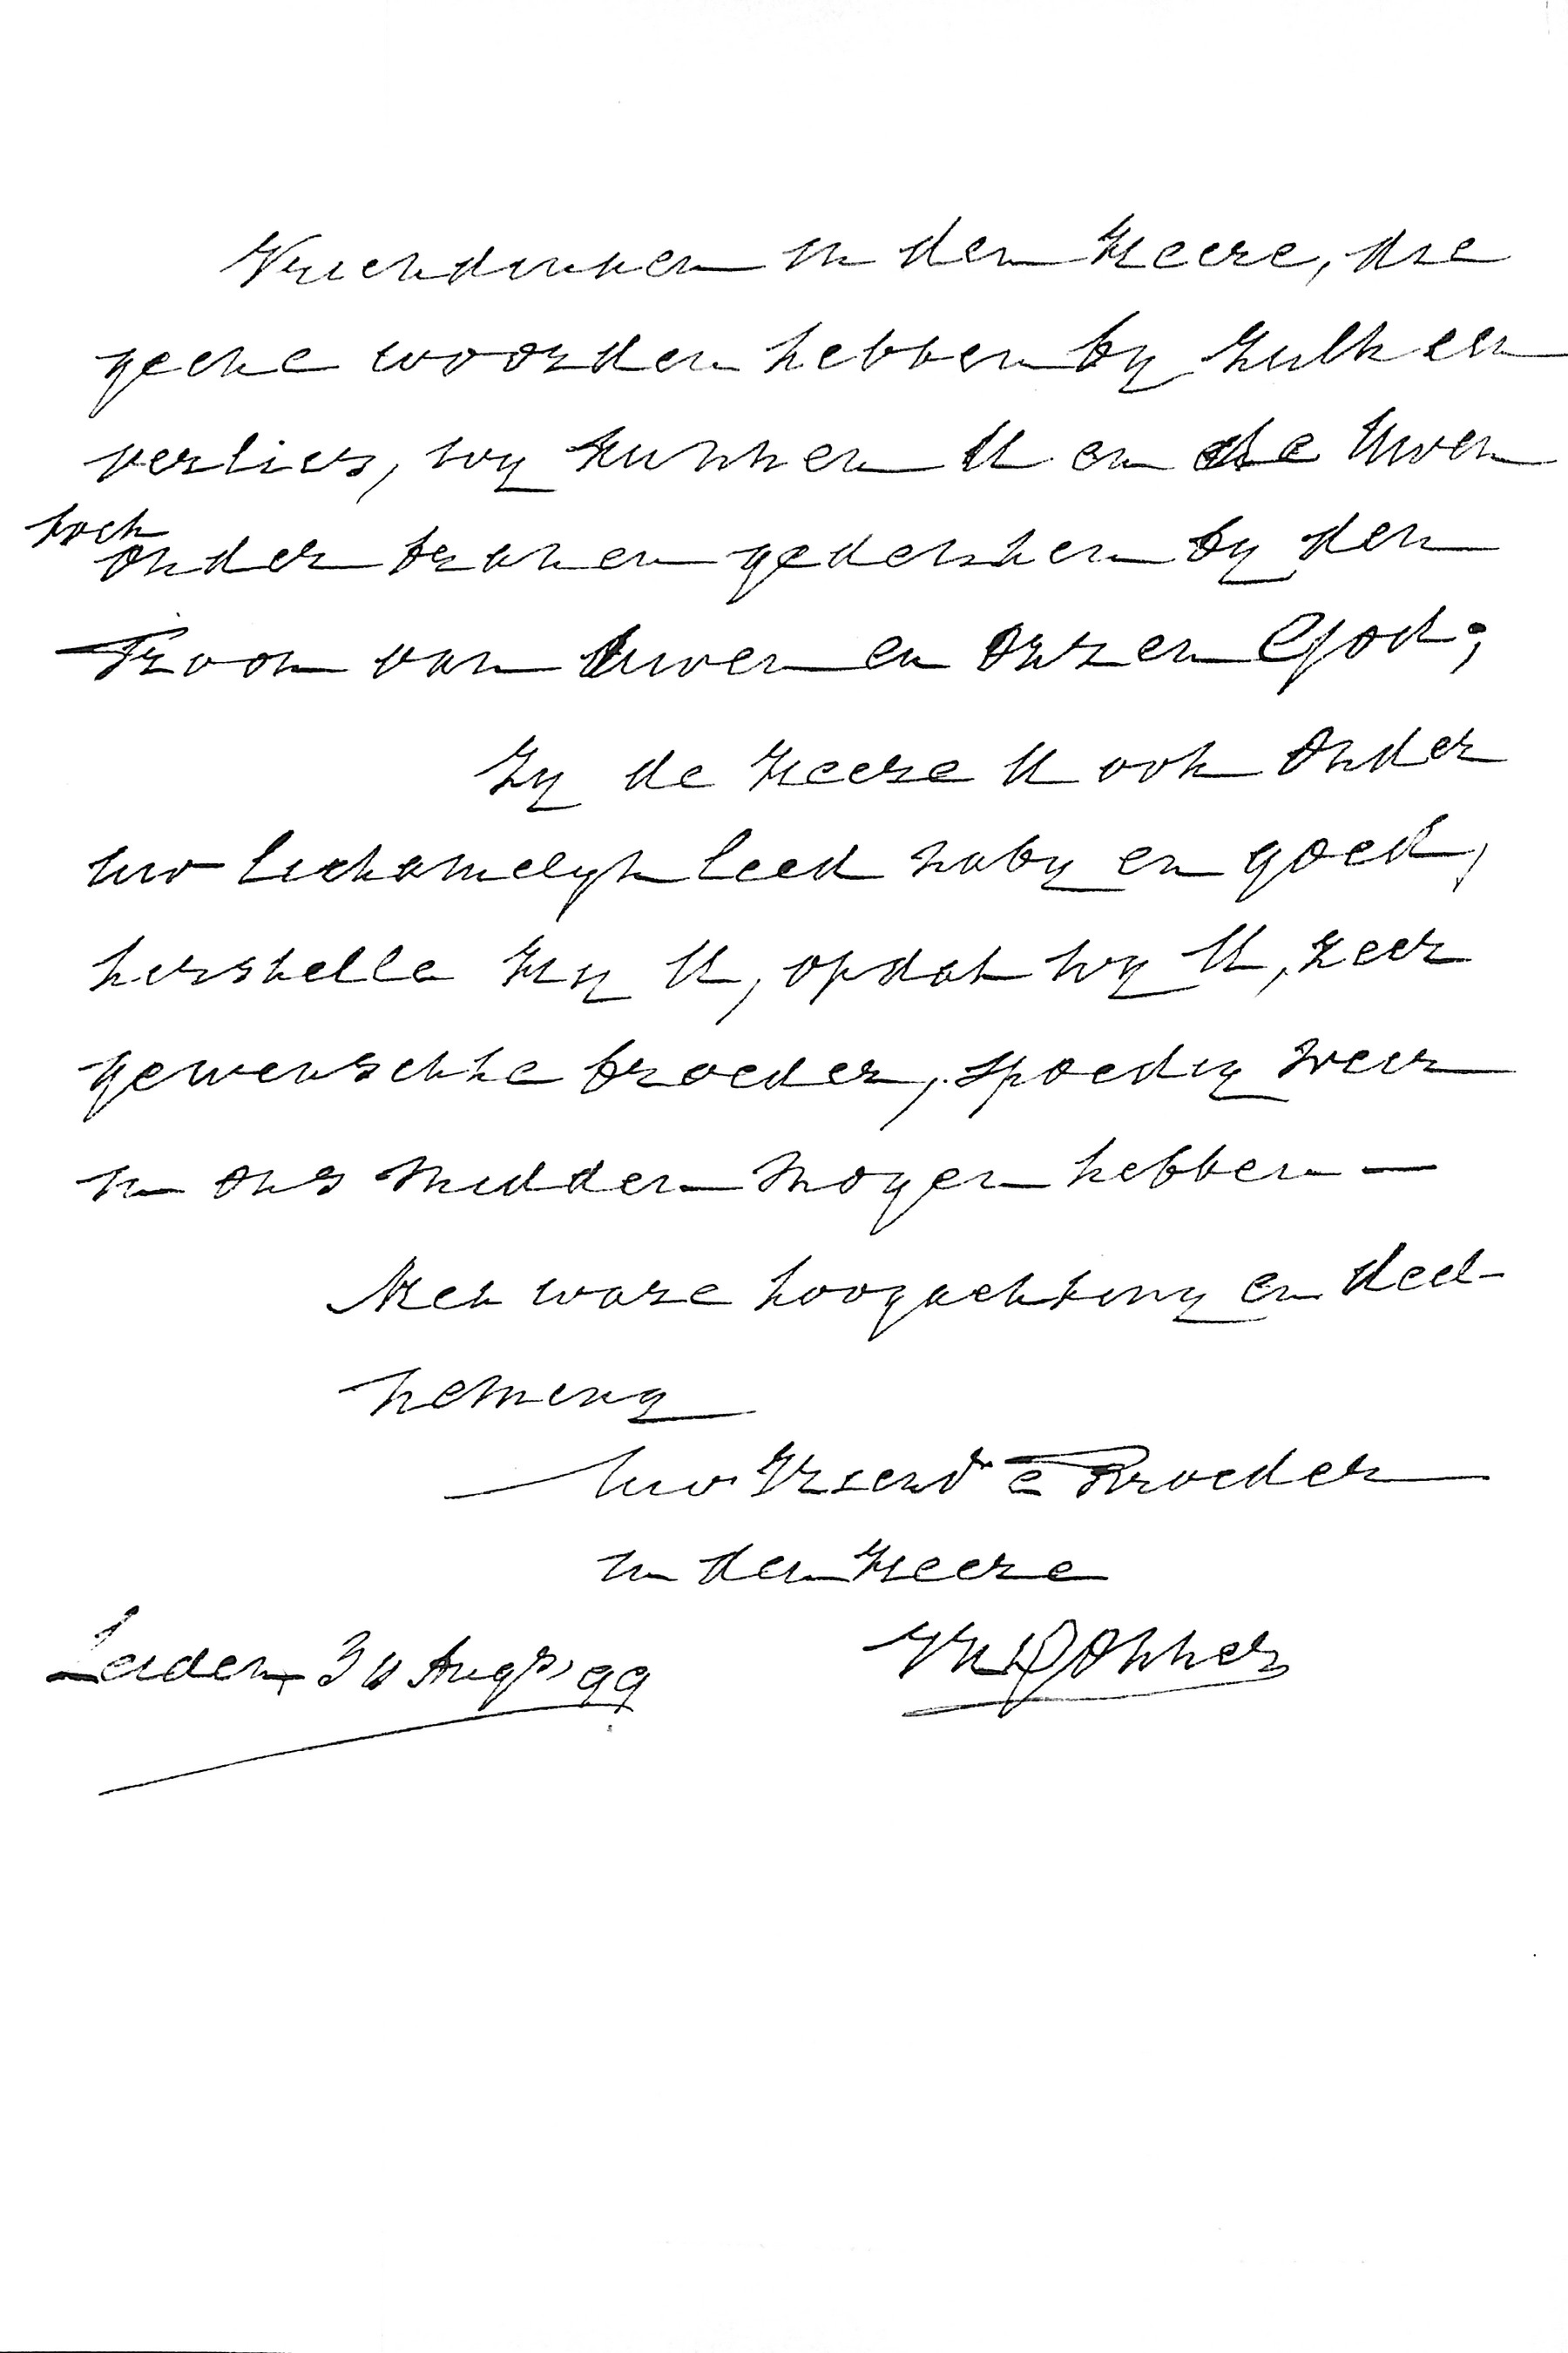 Vriendinnen in den Heere, die
geene woorden hebben by zulk een
verlies, wy kunnen U en de Uwen
toch
onder tranen gedenken by den
Troon van Uwen en Onzen God;
Zy de Heere U ook onder
uw lichamelyk leed naby en goed,
herstelle Hy U, opdat wy U, zeer
gewenschte broeder, spoedig weer
in ons midden mogen hebben —
Met ware hoogachting en deel-
neming
Uw Vriend e Broeder
in den Heere
Leiden, 30 Augs '99
JH Donner